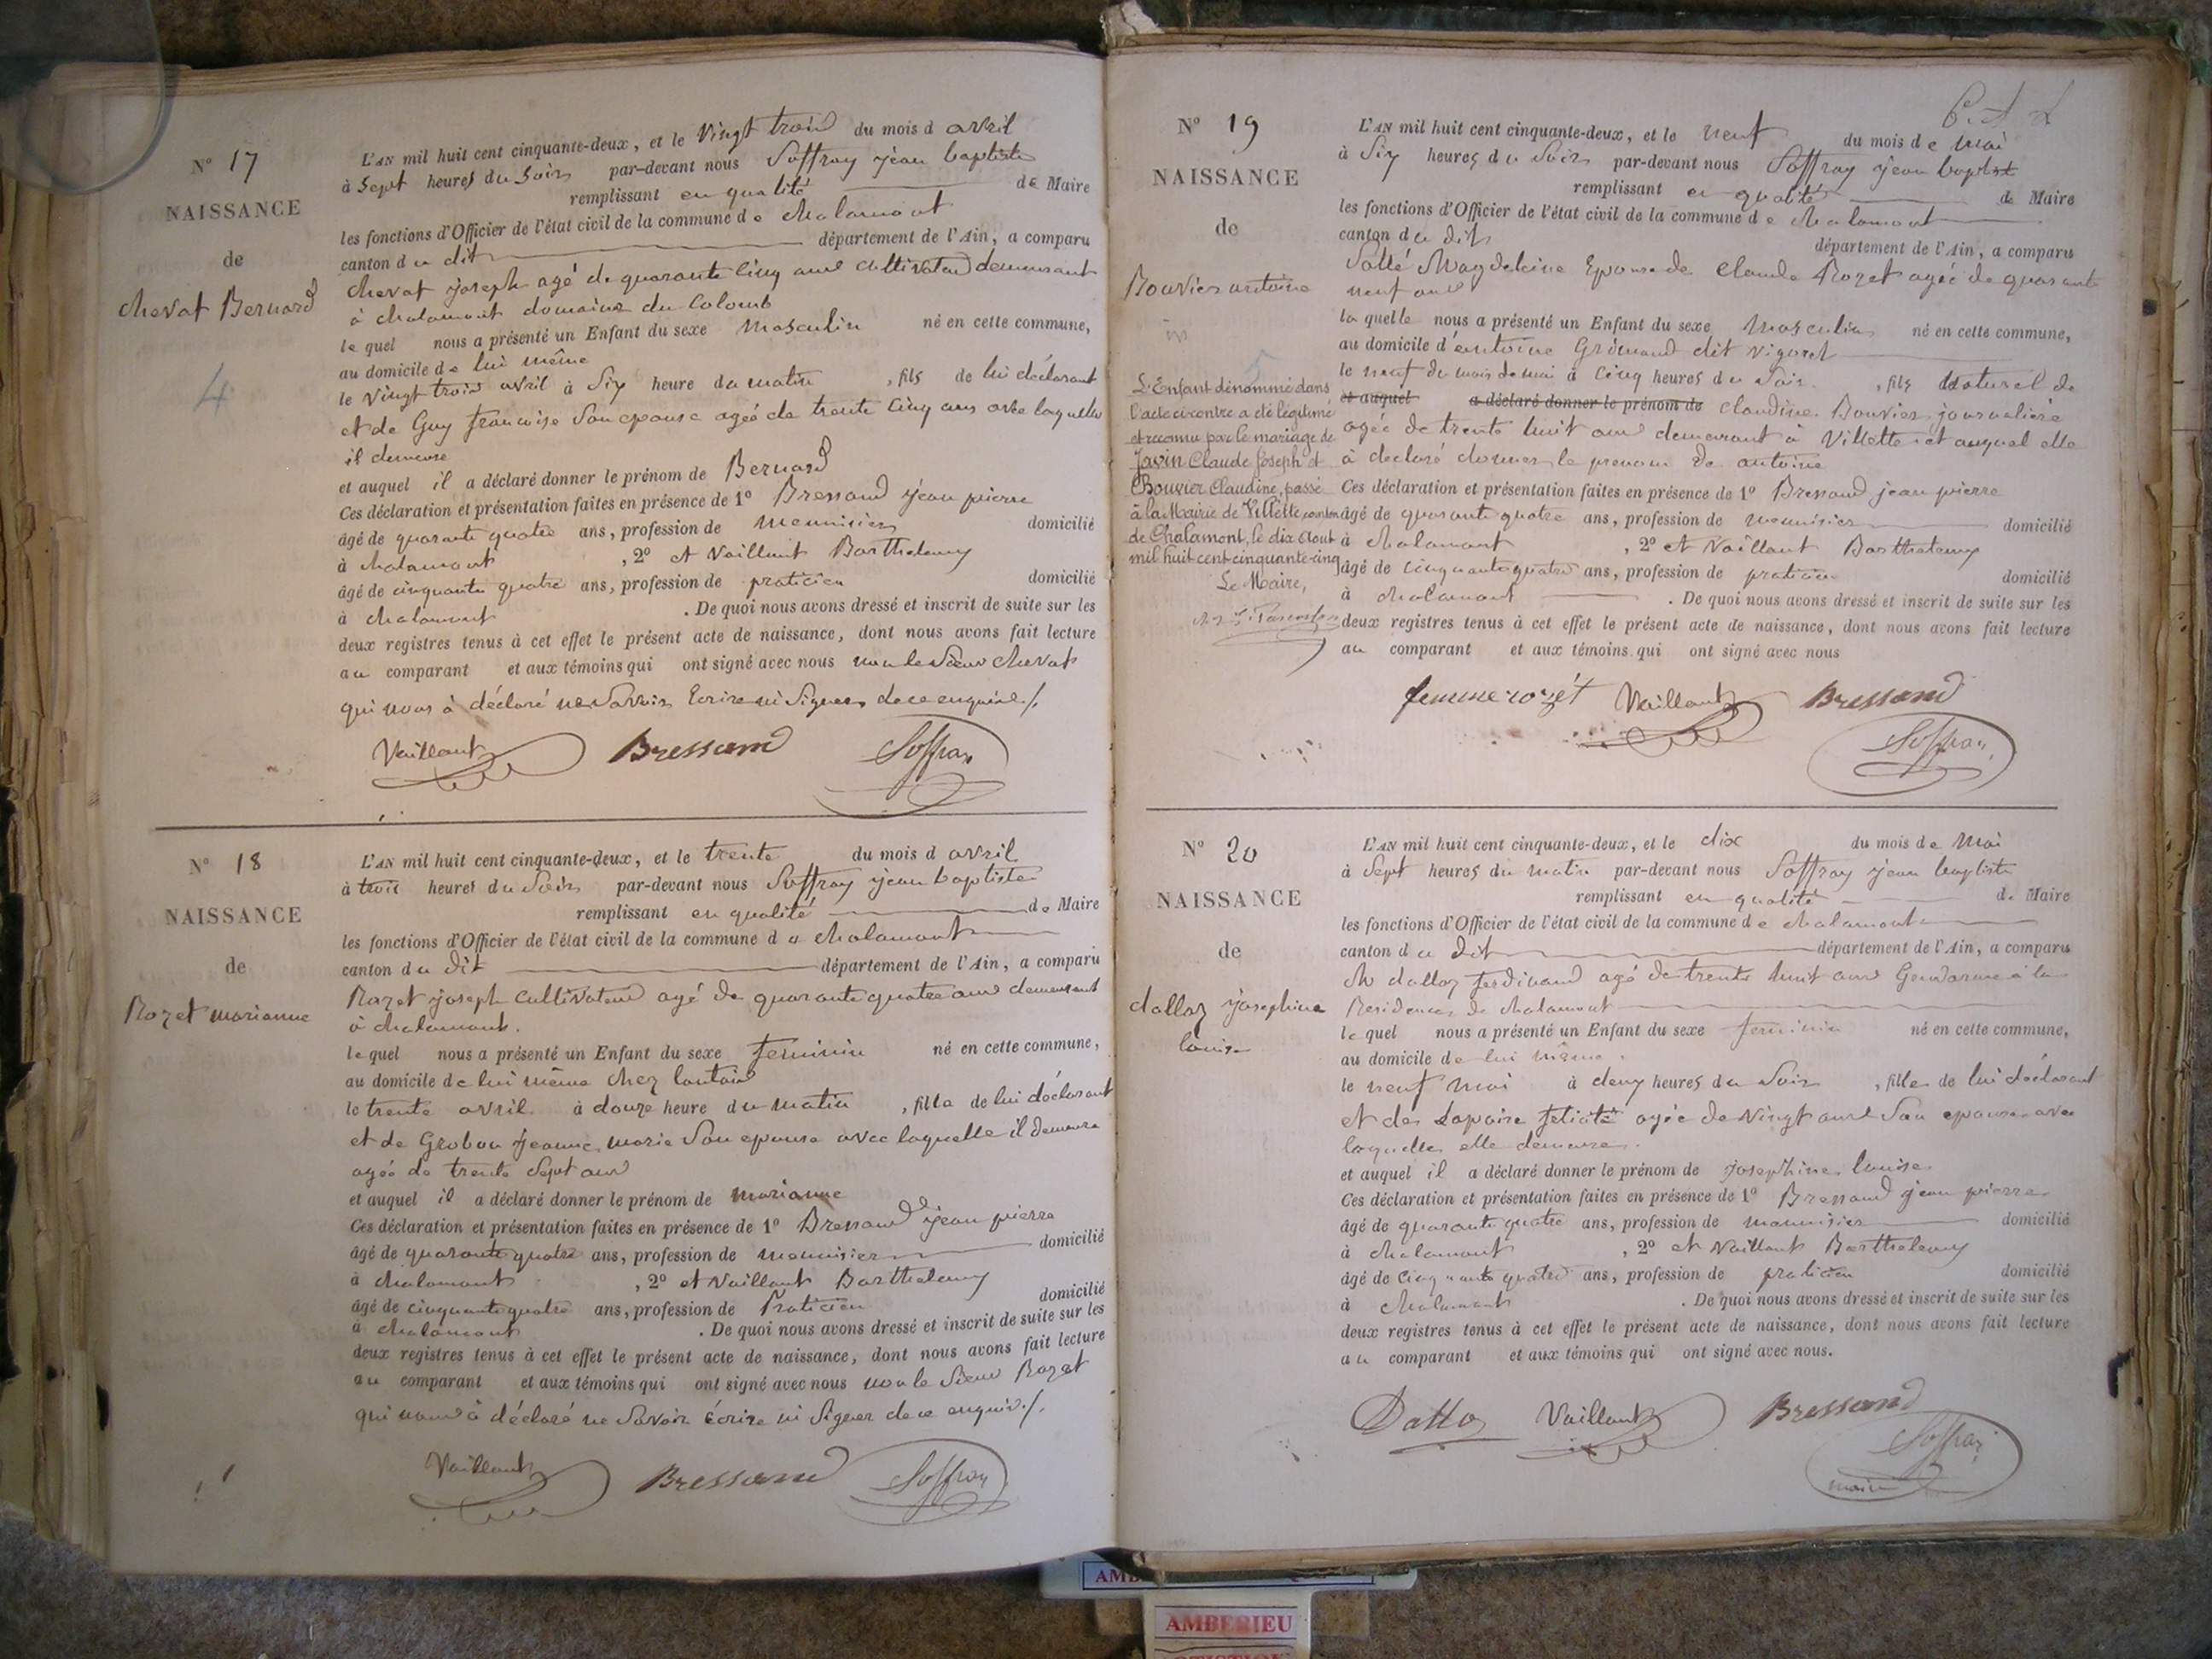 N° 17
NAISSANCE
de
chevat Bernard
4
L'AN mil huit cent cinquante-deux, et le vingt trois du mois d avril
à sept heures du soir par-devant nous Soffray jean baptiste
remplissant en qualité de Maire
les fonctions d'Officier de l'état civil de la commune de chalamont
canton du dit département de l'Ain, a comparu
chevat joseph agé de quarante cinq ans cultivateur demeurant
à chalamont domaine du Colomb
le quel nous a présenté un Enfant du sexe masculin né en cette commune,
au domicile de lui même
le vingt trois avril à six heure du matin , fils de lui déclarant
et de Guy francoise son epouse agée de trente cinq ans avec laquelle
il demeure
et auquel il a déclaré donner le prénom de Bernard
Ces déclaration et présentation faites en présence de 1° Bressand jean pierre
âgé de quarante quatre ans, profession de menuisier domicilié
à chalamont , 2° et Vaillant Barthelemy
âgé de cinquante quatre ans, profession de praticien domicilié
à chalamont . De quoi nous avons dressé et inscrit de suite sur les
deux registres tenus à cet effet le présent acte de naissance, dont nous avons fait lecture
au comparant et aux témoins qui ont signé avec nous non le sieur chevat
qui nous à déclaré ne savoir Ecrire ni signer de ce enquis ./.
Vaillant Bressand Soffray
N° 18
NAISSANCE
de
Rozet marianne
L'AN mil huit cent cinquante-deux, et le trente du mois d avril
à trois heures du soir par-devant nous Soffray jean baptiste
remplissant en qualité de Maire
les fonctions d'Officier de l'état civil de la commune de chalamont
canton du dit département de l'Ain, a comparu
Rozet joseph cultivateur agé de quarante quatre ans demeurant
à chalamont.
le quel nous a présenté un Enfant du sexe feminin né en cette commune,
au domicile de lui même chez
le trente avril à douze heure du matin , fille de lui déclarant
et de Grobon jeanne marie son epouse avec laquelle il demeure
agée de trente sept ans
et auquel il a déclaré donner le prénom de marianne
Ces déclaration et présentation faites en présence de 1° Bressand jean pierre
âgé de quarante quatre ans, profession de menuisier domicilié
à chalamont , 2° et Vaillant Barthelemy
âgé de cinquante quatre ans, profession de Praticien domicilié
à chalamont . De quoi nous avons dressé et inscrit de suite sur les
deux registres tenus à cet effet le présent acte de naissance, dont nous avons fait lecture
au comparant et aux témoins qui ont signé avec nous non le sieur Rozet
qui nous à déclaré ne savoir écrire ni signer de ce enquis ./.
Vaillant Bressand Soffray
N° 19
NAISSANCE
de
Bouvier antoine
L'Enfant dénommé dans
l'acte ci contre a été légitimé
et reconnu par le mariage de
Javin Claude Joseph et
Bouvier Claudine, passé
à la Mairie de Villette, canton
de Chalamont, le dix Aout
mil huit cent cinquante-cinq
Le Maire,
L'AN mil huit cent cinquante-deux, et le neuf du mois de mai
à six heures du soir par-devant nous Soffray jean baptist
remplissant en qualité de Maire
les fonctions d'Officier de l'état civil de la commune de chalamont
canton du dit département de l'Ain, a comparu
Sallé Magdeleine Epouse de claude Rozet agée de quarante
neuf ans
la quelle nous a présenté un Enfant du sexe masculin né en cette commune,
au domicile d'antoine Grimand dit vigoret
le neuf du mois de mai à cinq heures du soir , fils Naturel de
et auquel a déclaré donner le prénom de claudine Bouvier journalière
agée de trente huit ans demeurant à Villette et auquel elle
à declaré donner le prenom de antoine
Ces déclaration et présentation faites en présence de 1° Bressand jean pierre
âgé de quarante quatre ans, profession de menuisier domicilié
à chalamont , 2° et Vaillant Barthelemy
âgé de cinquante quatre ans, profession de praticien domicilié
à chalamont . De quoi nous avons dressé et inscrit de suite sur les
deux registres tenus à cet effet le présent acte de naissance, dont nous avons fait lecture
au comparant et aux témoins qui ont signé avec nous
femme rozét Vaillant Bressand
Soffray
N° 20
NAISSANCE
de
dalloz josephine
louise
L'AN mil huit cent cinquante-deux, et le dix du mois de mai
à sept heures du matin par-devant nous Soffray jean baptiste
remplissant en qualité de Maire
les fonctions d'Officier de l'état civil de la commune de chalamont
canton du dit département de l'Ain, a comparu
dalloz ferdinand agé de trente huit ans Gendarme à la
Residence de chalamont
le quel nous a présenté un Enfant du sexe feminin né en cette commune,
au domicile de lui même.
le neuf mai à deux heures du soir , fille de lui déclarant
et de Lapoire felicité agée de vingt ans son epouse avec
laquelle elle demeure.
et auquel il a déclaré donner le prénom de josephine louise
Ces déclaration et présentation faites en présence de 1° Bressand jean pierre
âgé de quarante quatre ans, profession de menuisier domicilié
à chalamont , 2° et Vaillant Barthelemy
âgé de cinquante quatre ans, profession de praticien domicilié
à chalamont . De quoi nous avons dressé et inscrit de suite sur les
deux registres tenus à cet effet le présent acte de naissance, dont nous avons fait lecture
au comparant et aux témoins qui ont signé avec nous.
Dalloz Vaillant Bressand
Soffray
maire
AMBERIEU